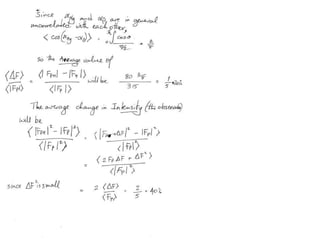 Since α_Hg and α_P are in general
uncorrelated with each other,
< cos(α_Hg - α_P)> =
so the Average value of
<ΔF> / <|F_P|> = <|F_PH| - |F_P|> / <|F_P|> will be 80 / 315 =
The average change in Intensity (the observable)
will be
<|F_PH|² - |F_P|²> / <|F_P|²> = <|F_P + ΔF|² - |F_P|²> / <|F_P|²>
= <2 F_P ΔF + ΔF²> / <|F_P|²>
since ΔF² is small = 2 <ΔF> / <F_P> = 2/5 = 40%